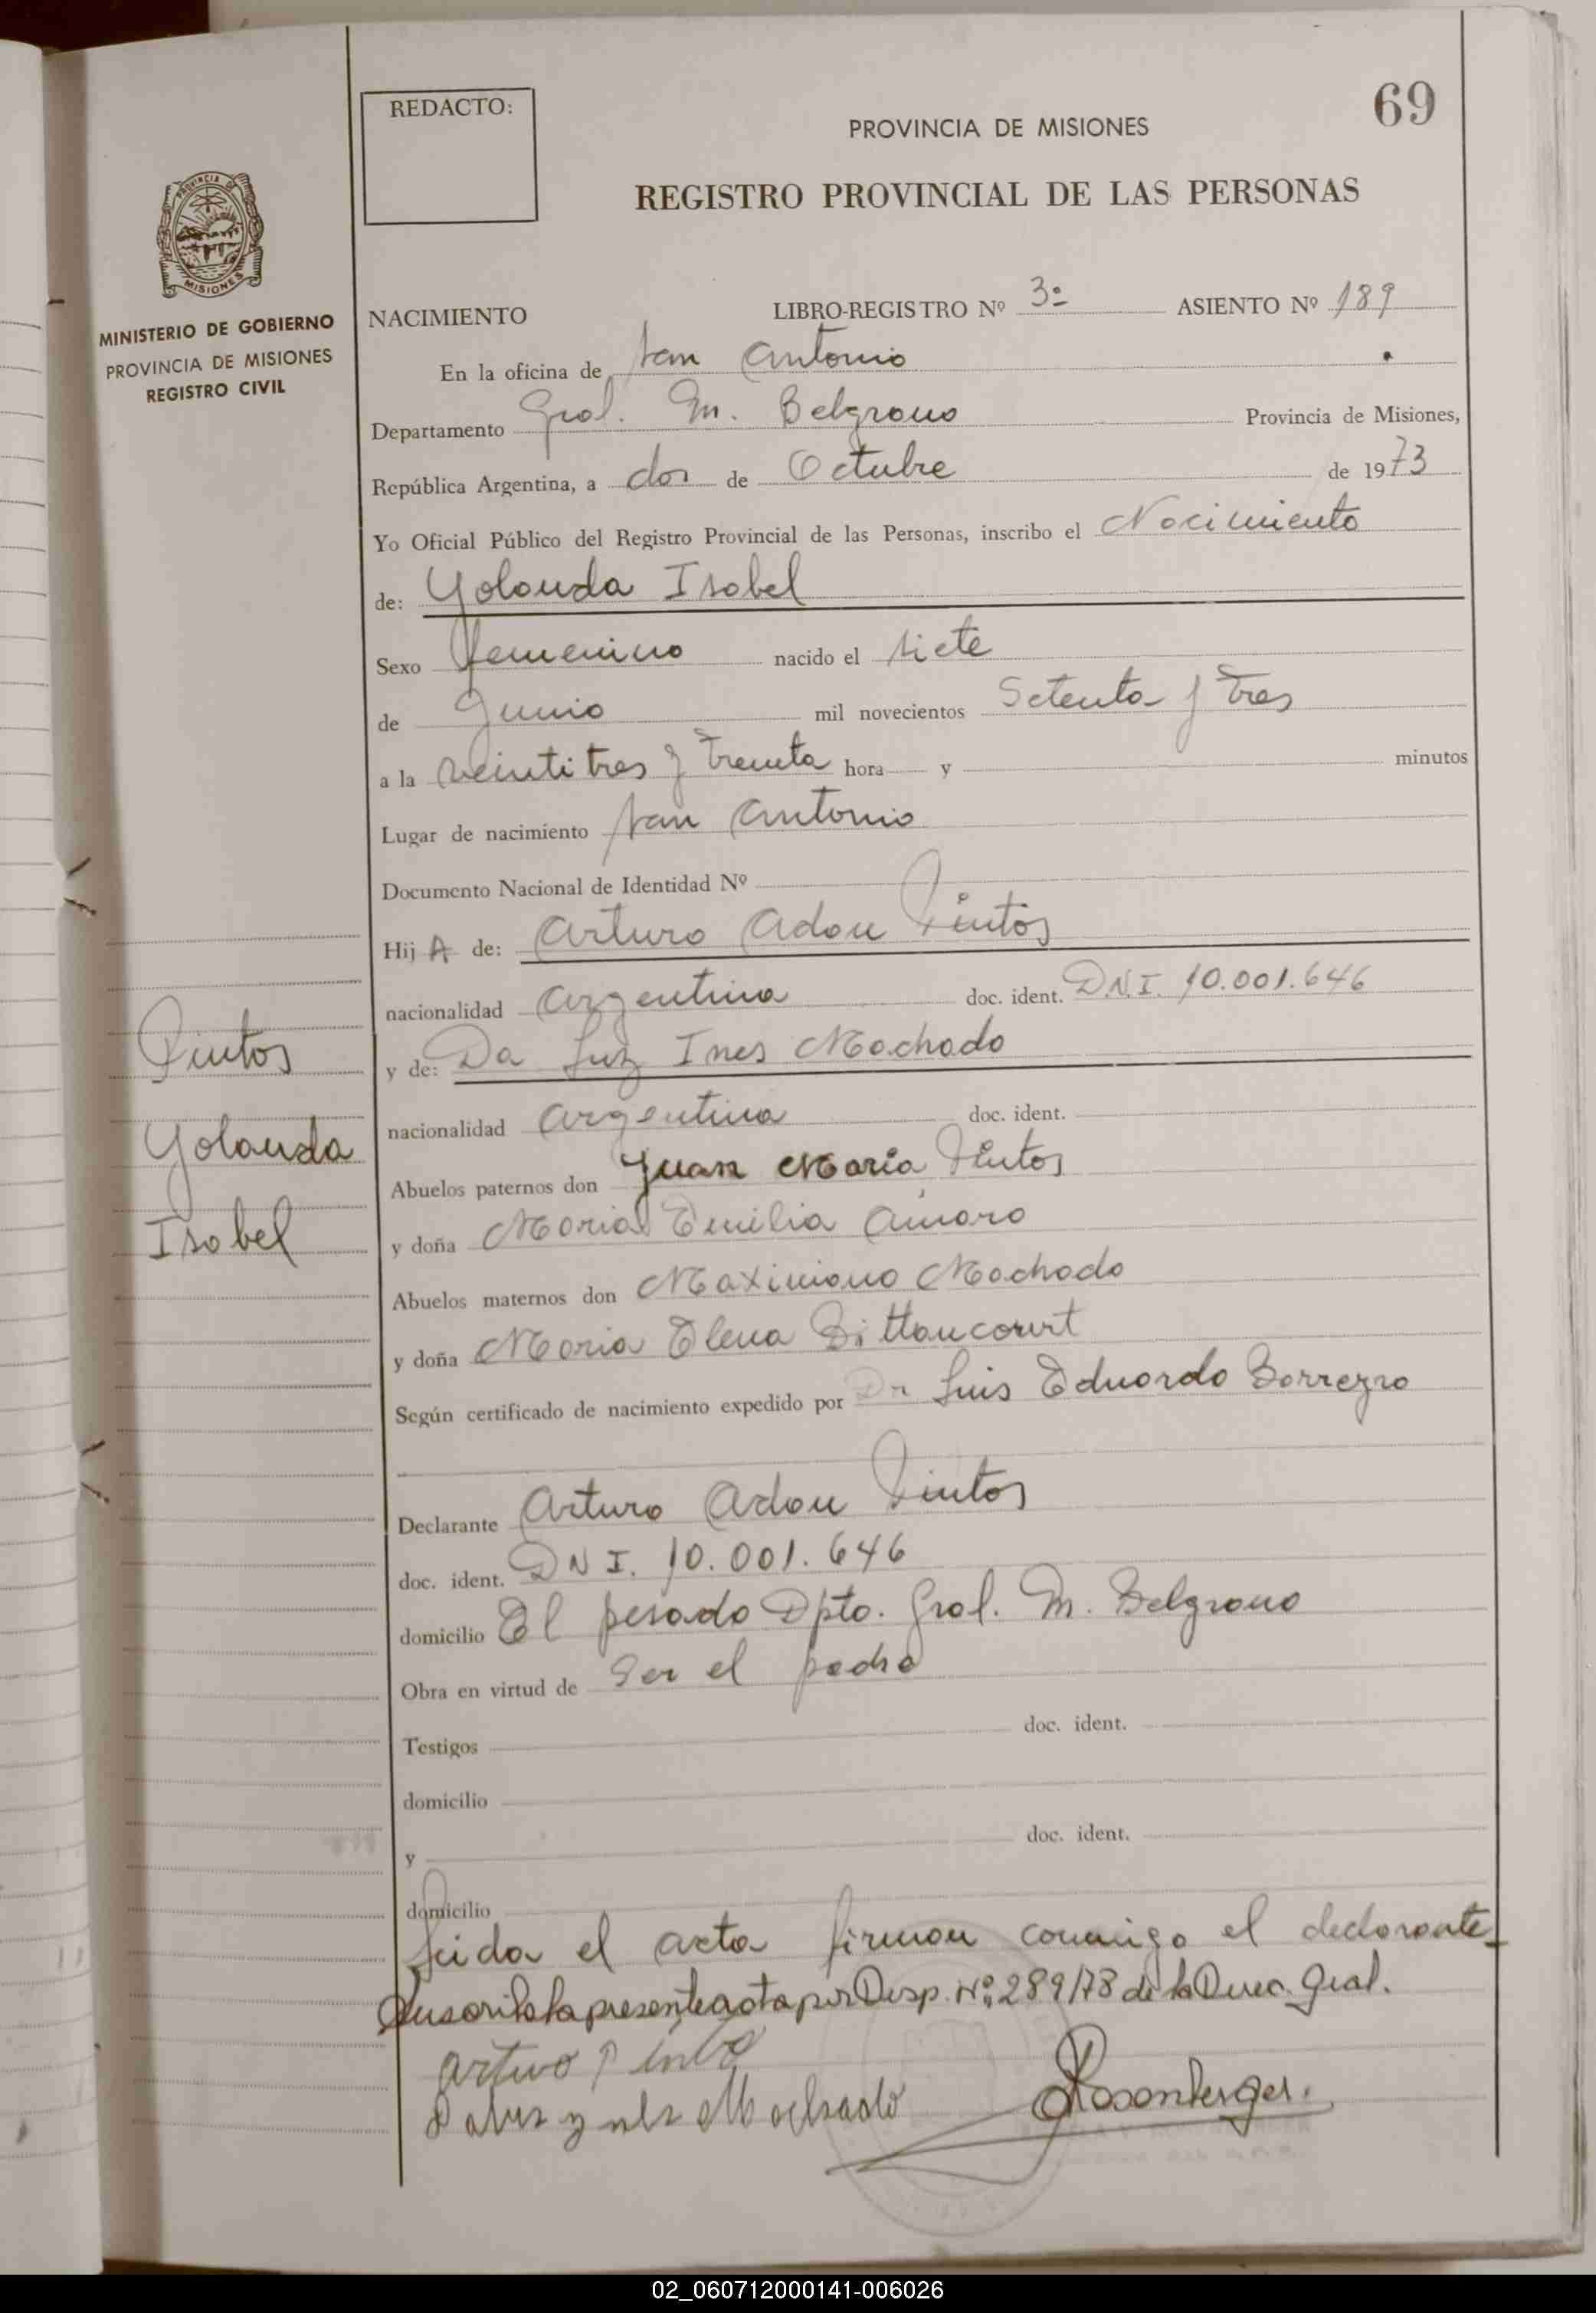 69
REDACTO:
PROVINCIA DE MISIONES
REGISTRO PROVINCIAL DE LAS PERSONAS
PROVINCIA DE
MISIONES
MINISTERIO DE GOBIERNO
PROVINCIA DE MISIONES
REGISTRO CIVIL
NACIMIENTO LIBRO-REGISTRO Nº 3º ASIENTO Nº 189
En la oficina de San Antonio
Departamento Gral. M. Belgrano Provincia de Misiones,
República Argentina, a dos de Octubre de 1973
Yo Oficial Público del Registro Provincial de las Personas, inscribo el Nacimiento
de: Yolanda Isabel
Sexo femenino nacido el siete
de Junio mil novecientos Setenta y tres
a la veintitres y treinta hora y minutos
Lugar de nacimiento San Antonio
Documento Nacional de Identidad Nº
Hij A de: Arturo Adan Pintos
nacionalidad argentina doc. ident. D.N.I. 10.001.646
y de: Da Luz Ines Machado
nacionalidad argentina doc. ident.
Abuelos paternos don Juan Maria Pintos
y doña Maria Emilia Amaro
Abuelos maternos don Maximiano Machado
y doña Maria Elena Bittancourt
Según certificado de nacimiento expedido por Dr Luis Eduardo Borregro
Declarante Arturo Adan Pintos
doc. ident. DNI. 10.001.646
domicilio El pesado Dpto. Gral. M. Belgrano
Obra en virtud de Ser el padre
Testigos doc. ident.
domicilio
y doc. ident.
domicilio
Leida el acta firman conmigo el declarante
Suscrita la presente acta por Disp. Nº 289/78 de la Direc. Gral.
Arturo Pinto
Machado
Rosenberger.
Pintos
Yolanda
Isabel
02_060712000141-006026